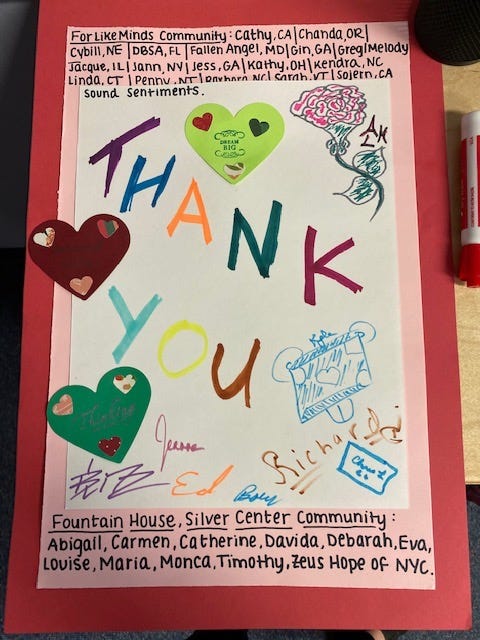 For Like Minds Community: Cathy, CA | Chanda, OR |
Cybill, NE | DBSA, FL | Fallen Angel, MD | Gin, GA | Greg | Melody
Jacque, IL | Jann, NV | Jess, GA | Kathy, OH | Kendra, NC
Linda, CT | Penny, NT | Barbara, NC | Sarah, VT | Sojern, CA
sound sentiments.
DREAM
BIG
THANK
YOU
Kyle
Jeanna
Richard
Chris L
Ed
Fountain House, Silver Center Community:
Abigail, Carmen, Catherine, Davida, Debarah, Eva,
Louise, Maria, Monca, Timothy, Zeus Hope of NYC.